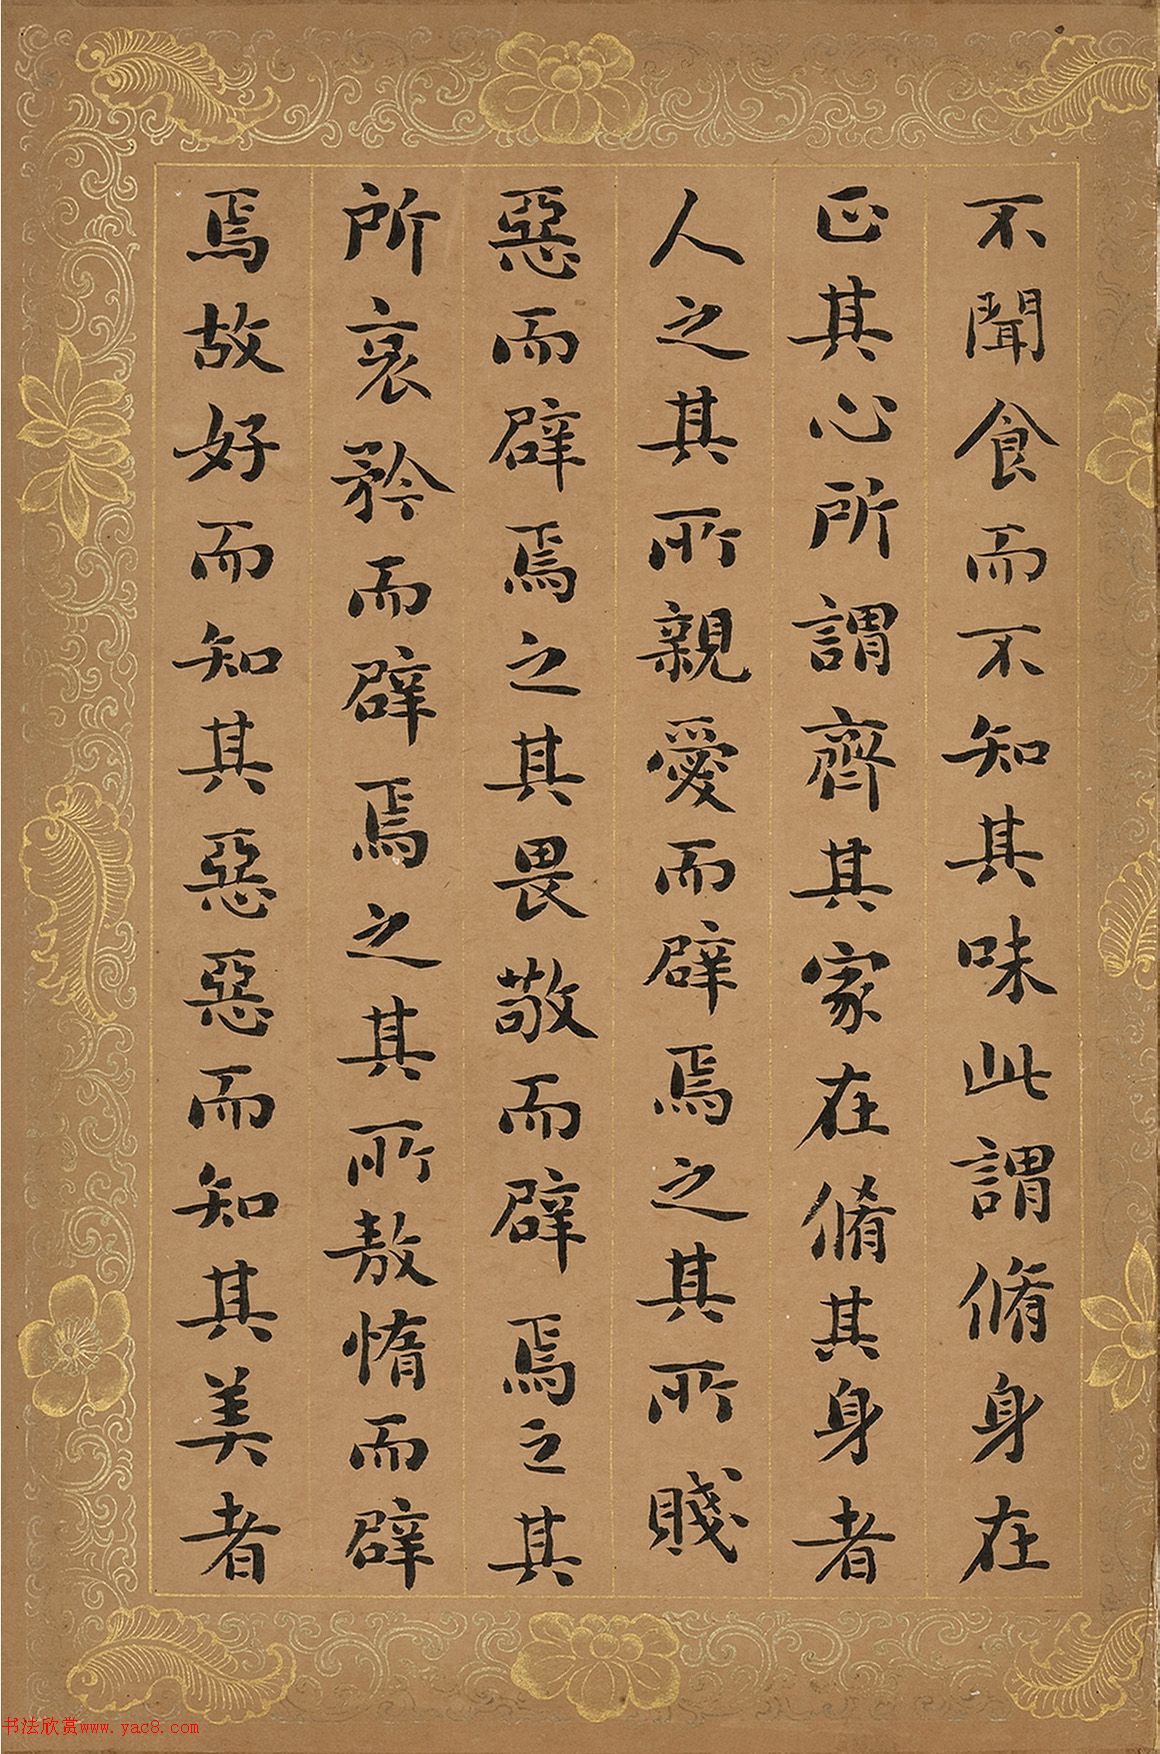 不聞食而不知其味此謂脩身在
正其心所謂齊其家在脩其身者
人之其所親愛而辟焉之其所賤
惡而辟焉之其畏敬而辟焉之其
所哀矜而辟焉之其所敖惰而辟
焉故好而知其惡惡而知其美者
书法欣赏www.yac8.com